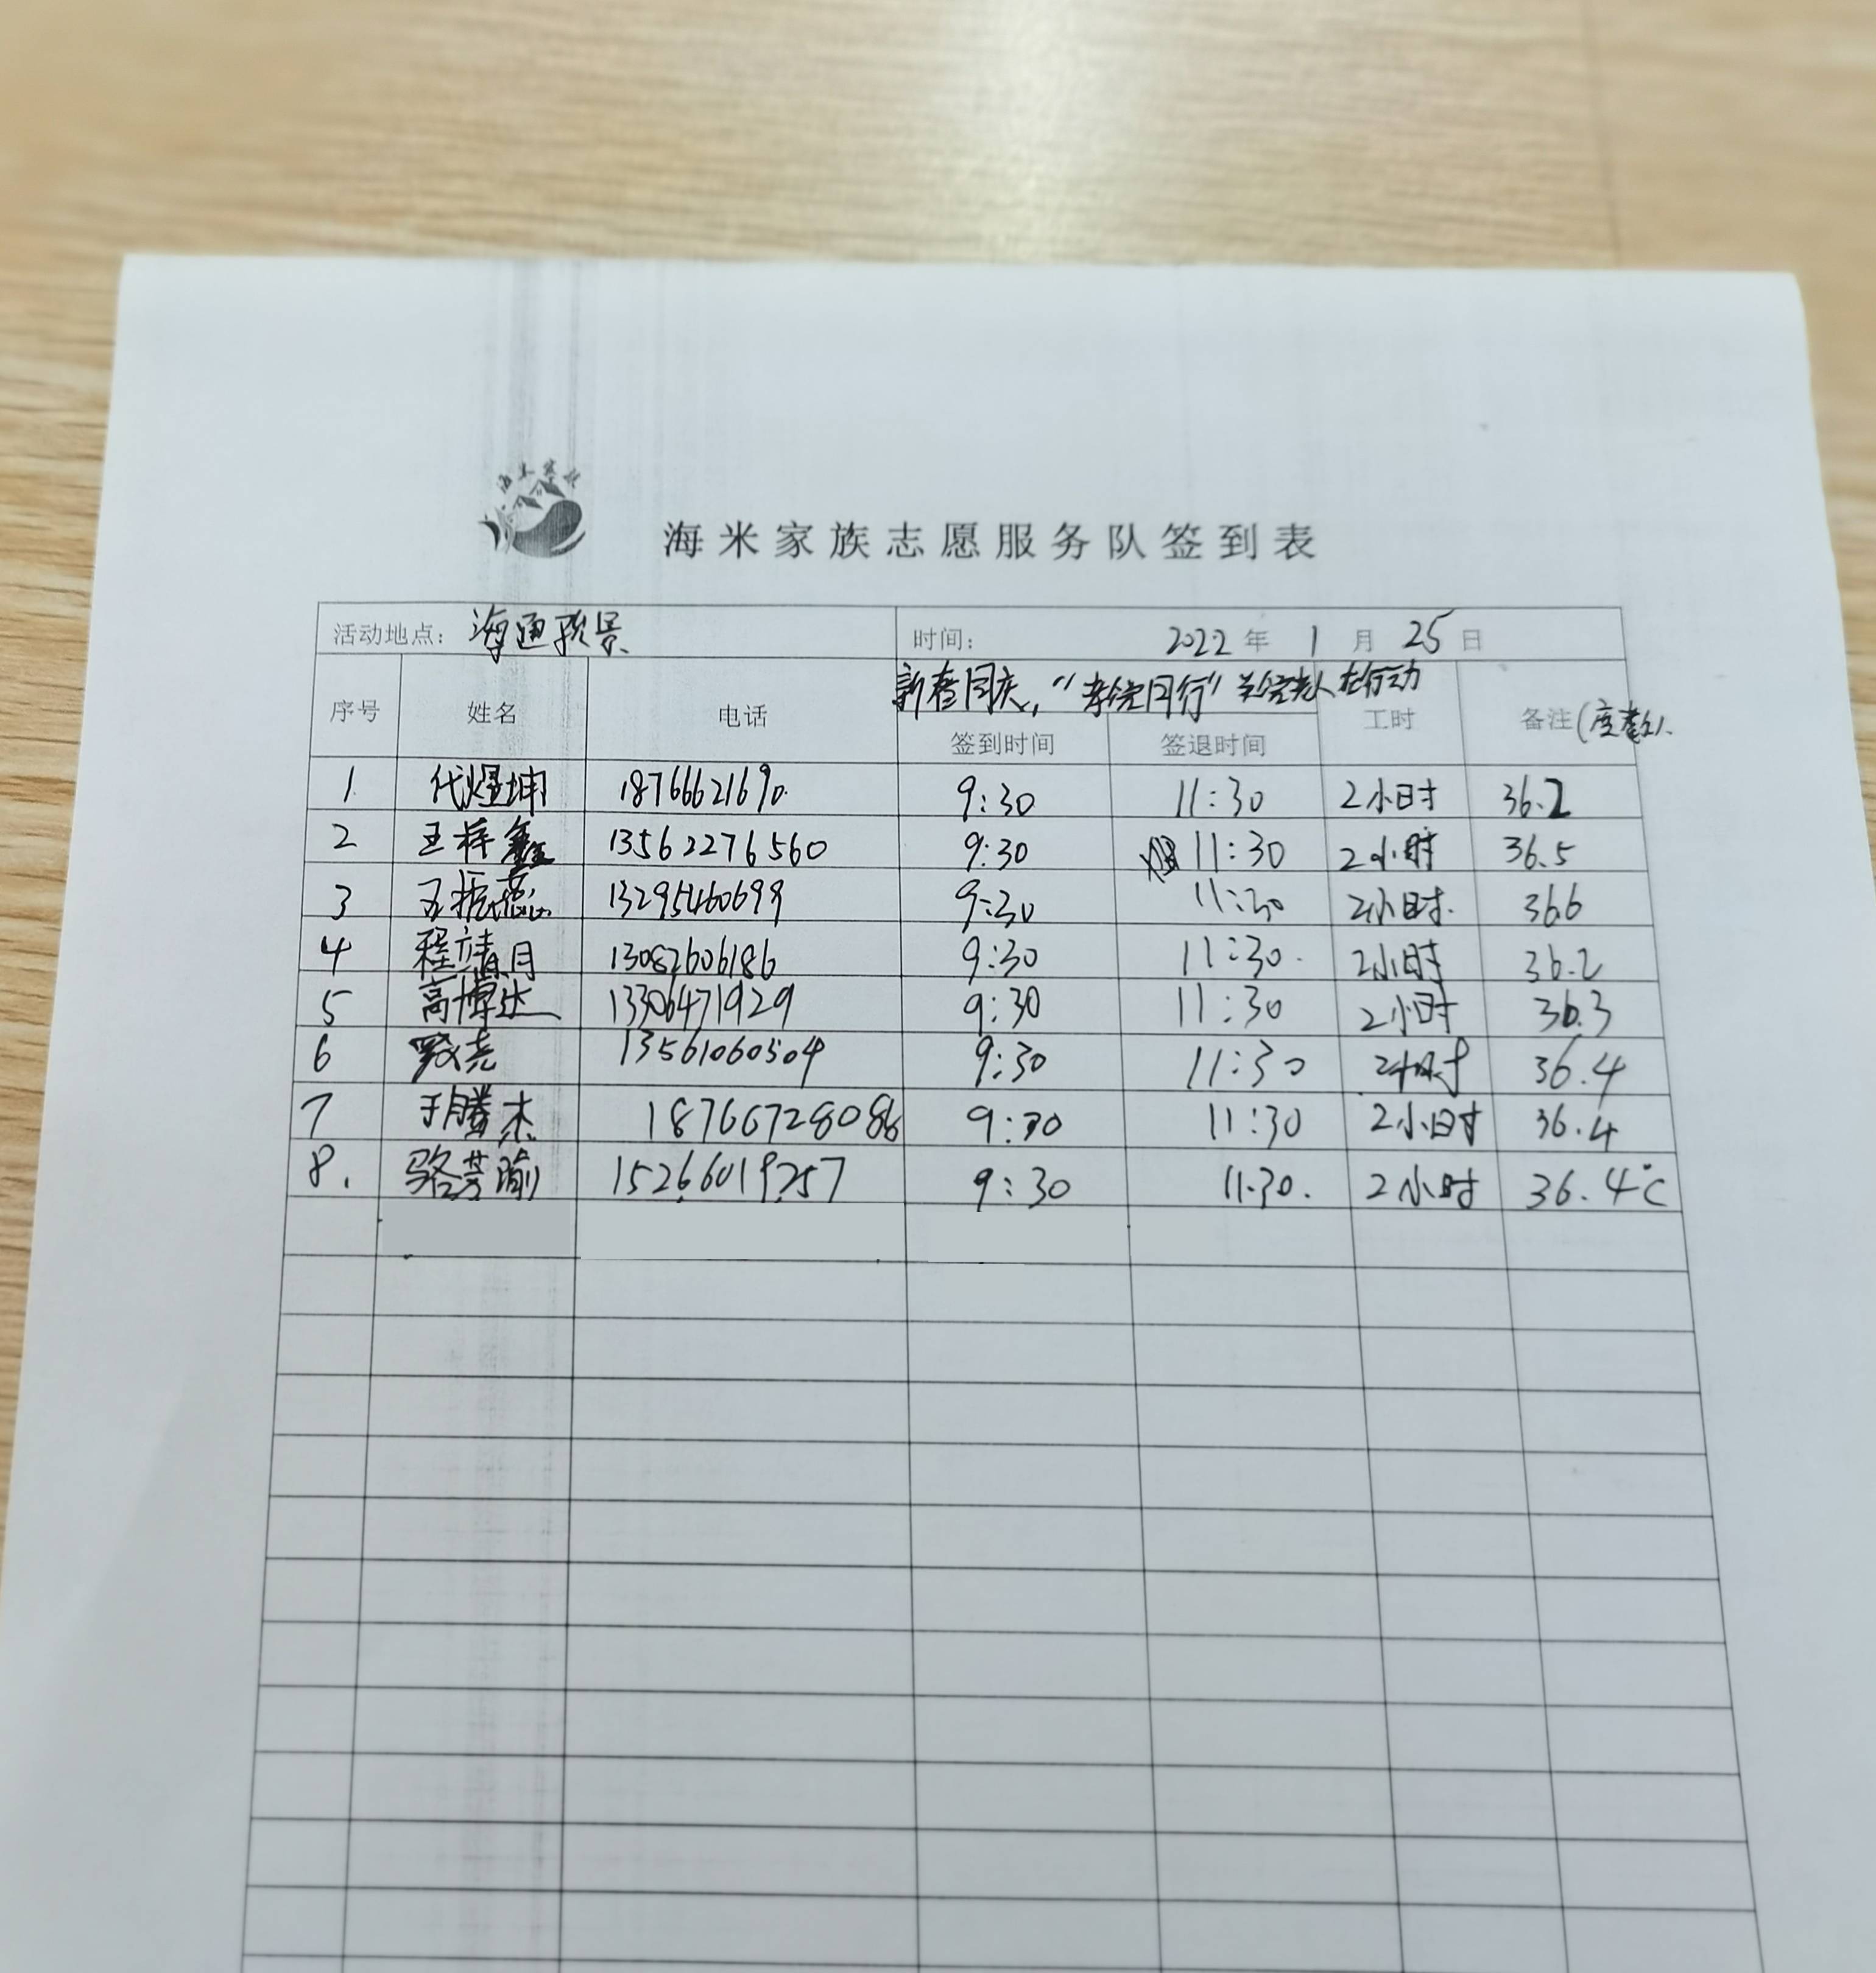 海米家族志愿服务队签到表
活动地点： 海通 景 时间： 2022 年 1 月 25 日
新春同庆，“孝统同行”关爱老人在行动
序号 姓名 电话 签到时间 签退时间 工时 备注(度数)
1 代煜坤 18766621690 9:30 11:30 2小时 36.2
2 王梓鑫 13562276560 9:30 11:30 2小时 36.5
3 王振蕊 13295460699 9:30 11:30 2小时 36.6
4 程靖月 13082606186 9:30 11:30 2小时 36.2
5 高博达 13306471929 9:30 11:30 2小时 36.3
6 13561060504 9:30 11:30 2小时 36.4
7 于腾杰 18766728086 9:30 11:30 2小时 36.4
8. 骆芳瑜 15266019257 9:30 11:30. 2小时 36.4℃